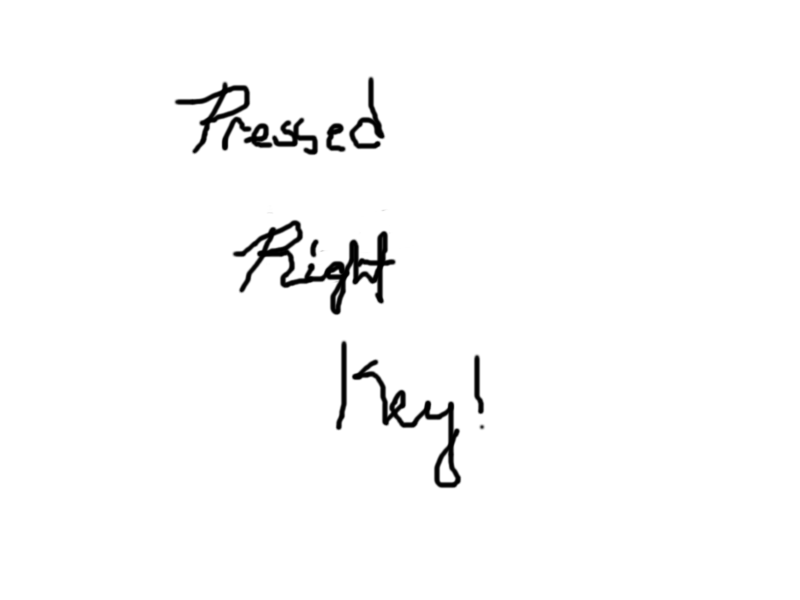 Pressed
Right
Key!